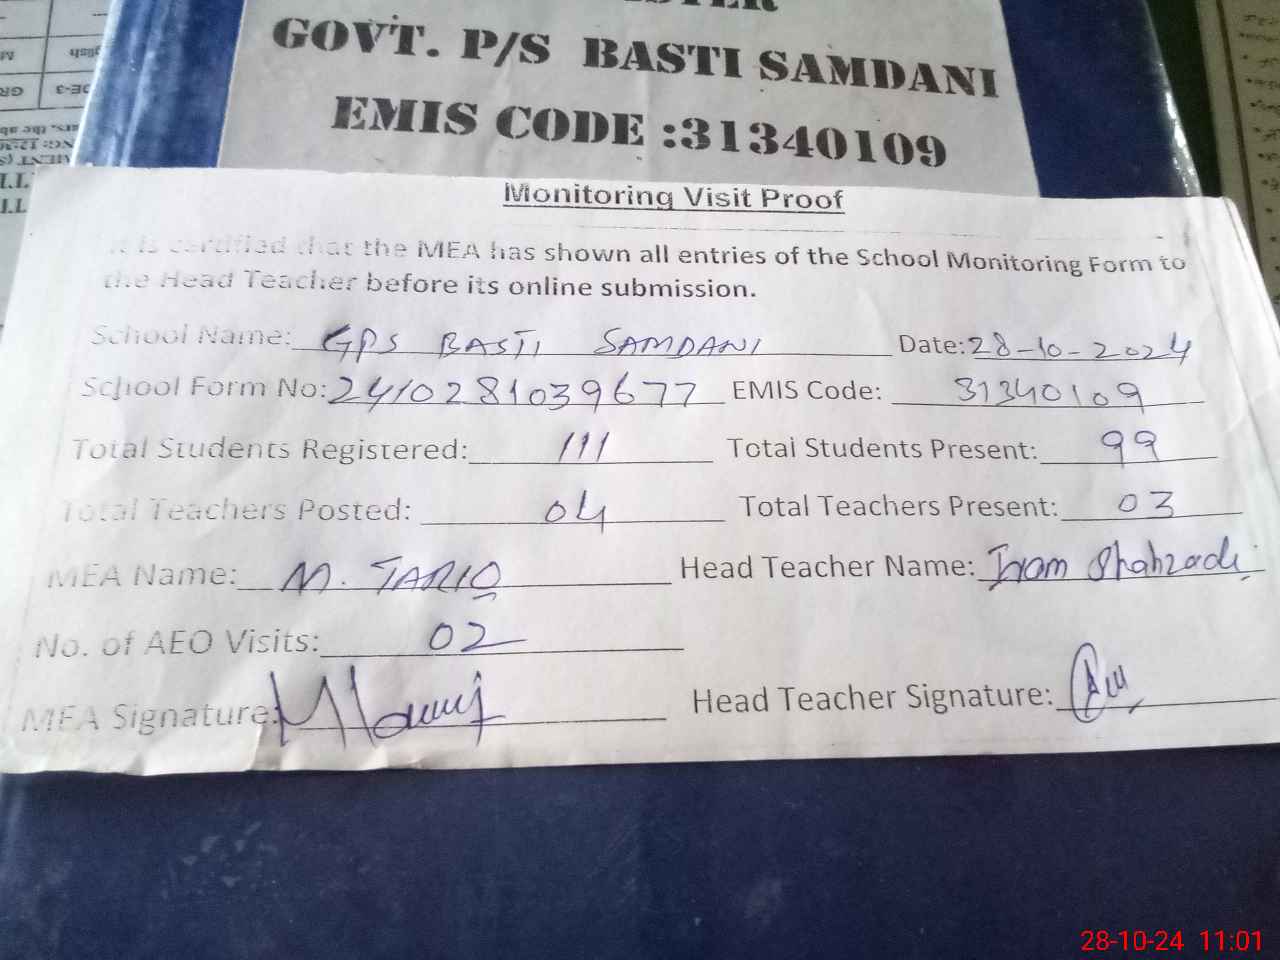 GOVT. P/S BASTI SAMDANI
EMIS CODE :31340109
Monitoring Visit Proof
It is certified that the MEA has shown all entries of the School Monitoring Form to
the Head Teacher before its online submission.
School Name: GPS BASTI SAMDANI Date: 28-10-2024
School Form No: 2410281039677 EMIS Code: 31340109
Total Students Registered: 111 Total Students Present: 99
Total Teachers Posted: 04 Total Teachers Present: 03
MEA Name: M. TARIQ Head Teacher Name: Iram Shahzadi
No. of AEO Visits: 02
MEA Signature: Head Teacher Signature:
28-10-24 11:01